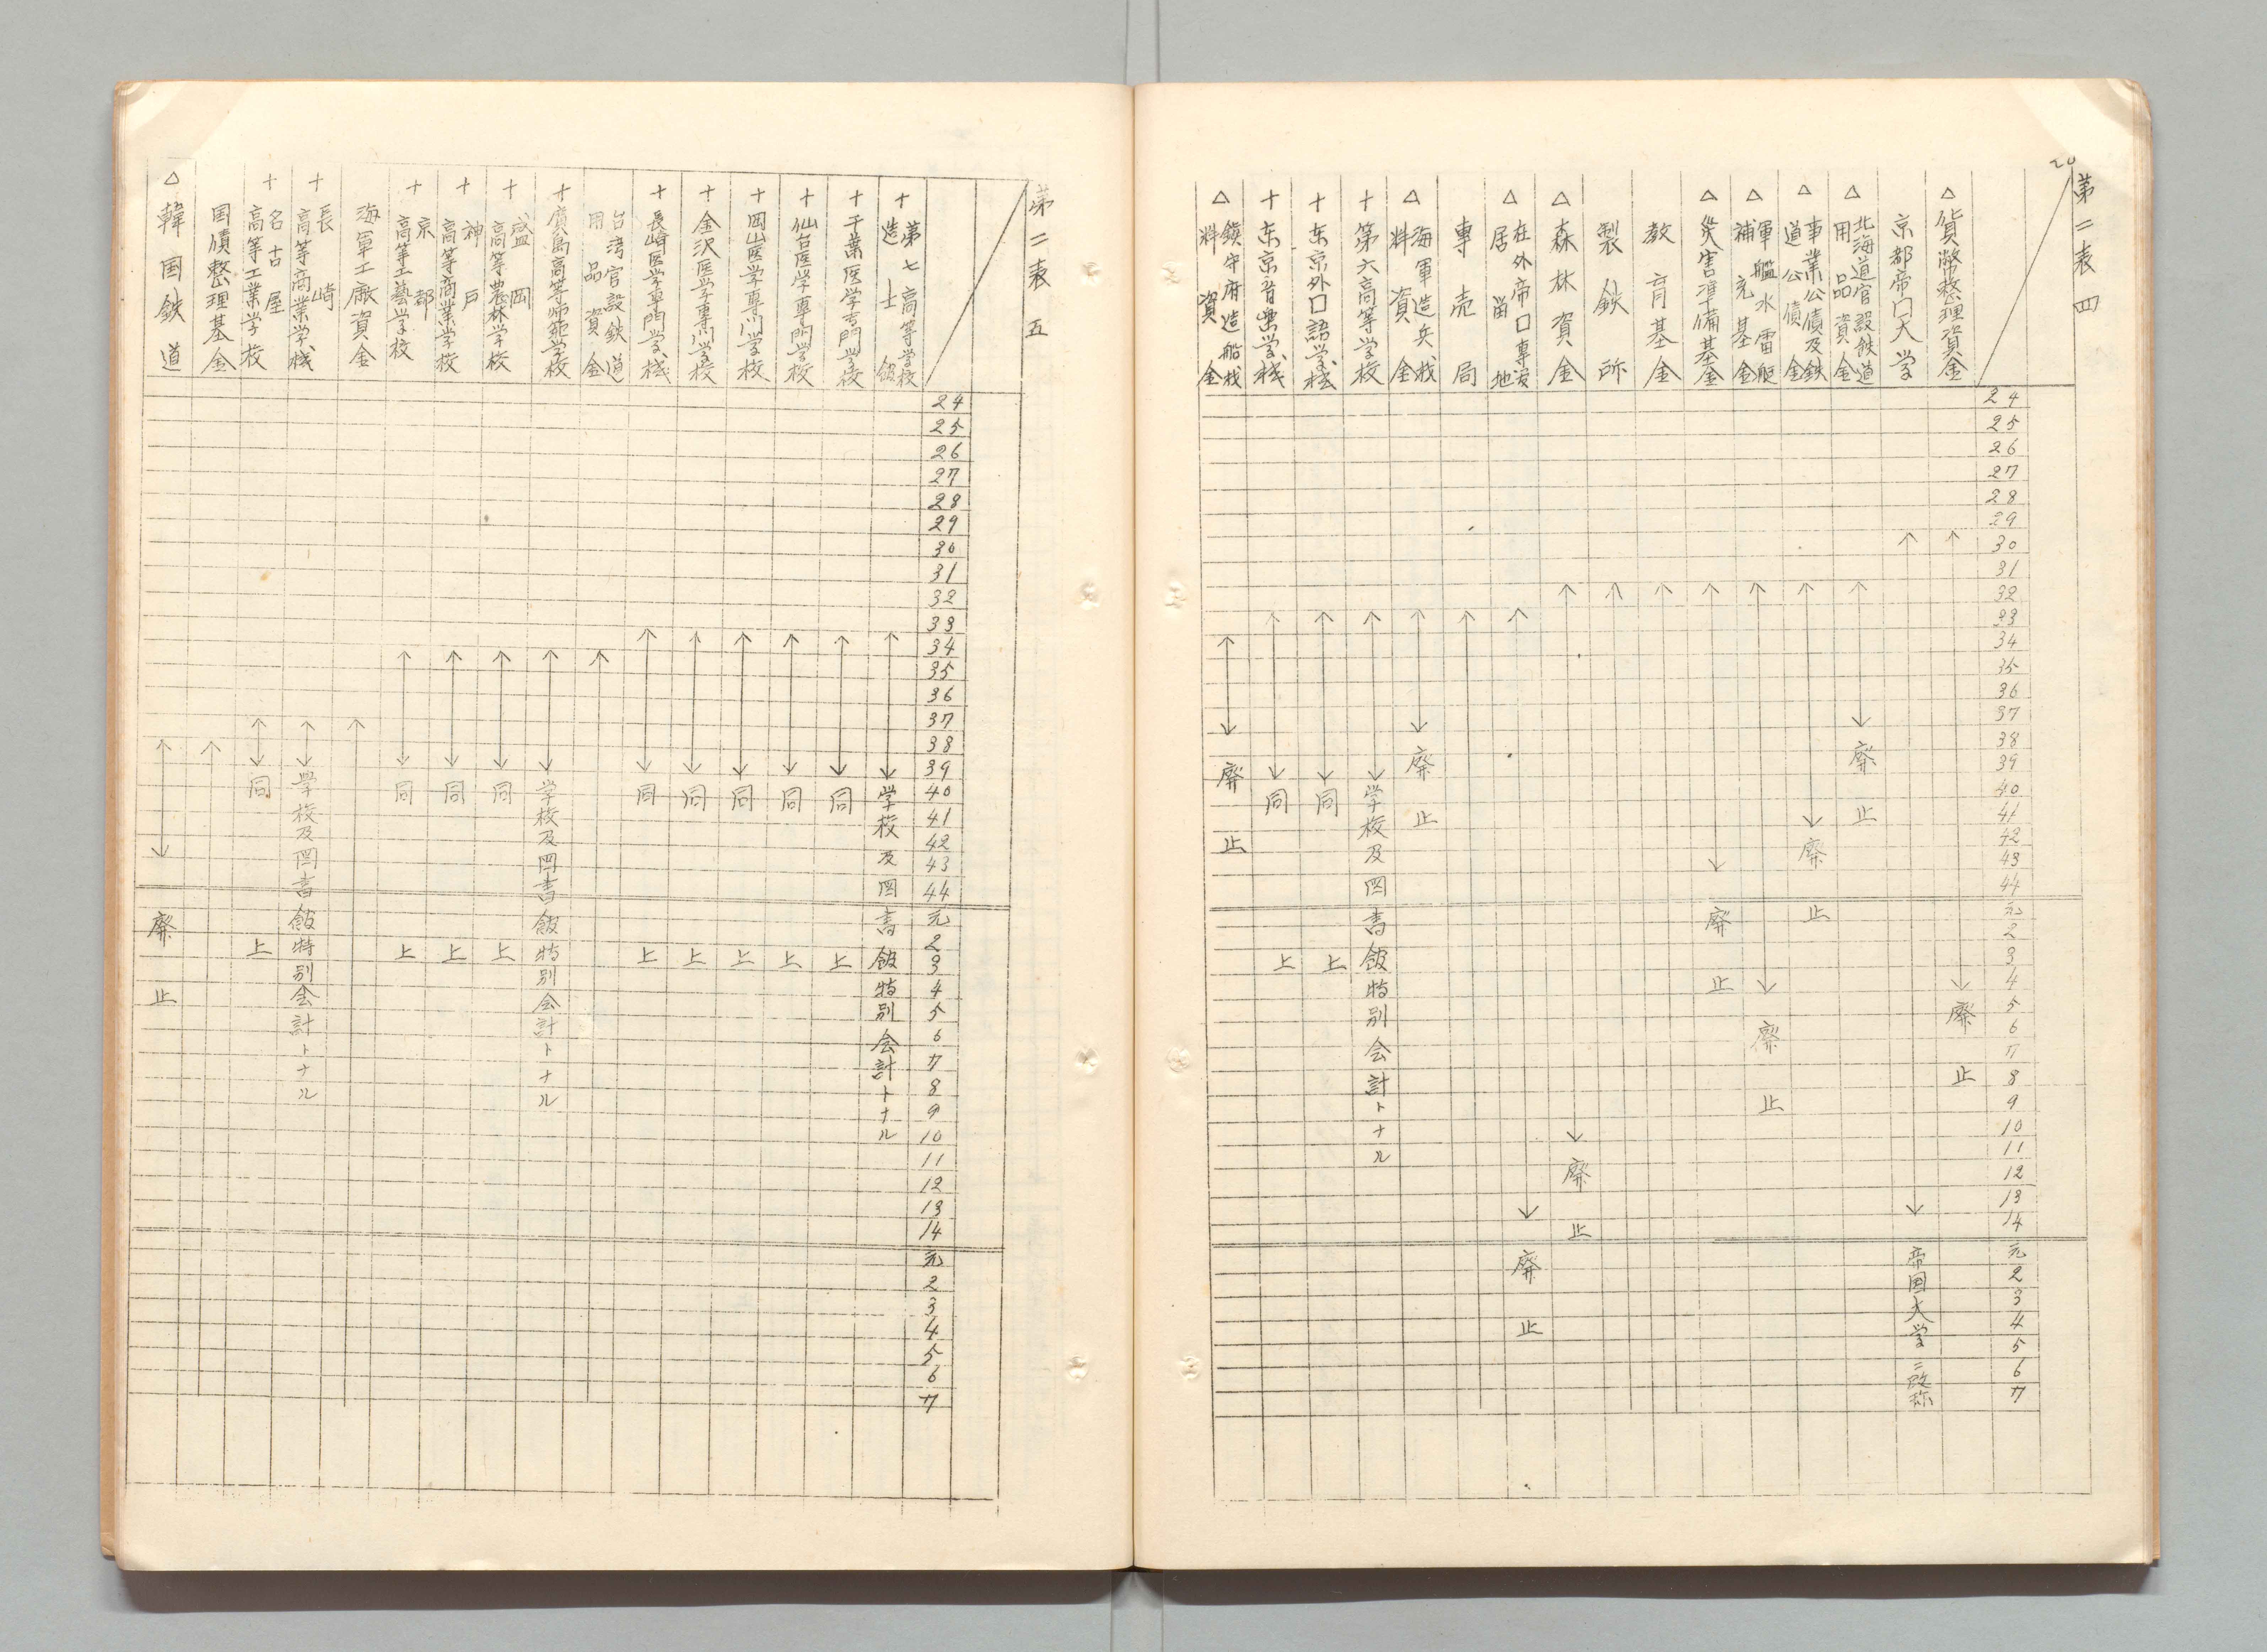 20
第二表 四
24
25
26
27
28
29
30
31
32
33
34
35
36
37
38
39
40
41
42
43
44
元
2
3
4
5
6
7
8
9
10
11
12
13
14
元
2
3
4
5
6
7
△ 貨幣整理資金
廃止
京都帝口大学
帝国大学ニ改称
△ 北海道官設鉄道
用品資金
廃止
△ 事業公債及鉄
道公債金
廃止
△ 軍艦水雷艇
補充基金
廃止
△ 災害準備基金
廃止
教育基金
製鉄所
△ 森林資金
廃止
△ 在外帝口専管
居留地
廃止
専売局
△ 海軍造兵材
料資金
廃止
十 第六高等学校
学校及図書館特別会計トナル
十 东京外口語学校
同上
十 东京音楽学校
同上
△ 鎮守府造船材
料資金
廃止
第二表 五
24
25
26
27
28
29
30
31
32
33
34
35
36
37
38
39
40
41
42
43
44
元
2
3
4
5
6
7
8
9
10
11
12
13
14
元
2
3
4
5
6
7
十 第七高等学校
造士館
学校及図書館特別会計トナル
十 千葉医学専門学校
同上
十 仙台医学専門学校
同上
十 岡山医学専門学校
同上
十 金沢医学専門学校
同上
十 長崎医学専門学校
同上
台湾官設鉄道
用品資金
十 廣島高等師範学校
学校及図書館特別会計トナル
十 盛岡
高等農林学校
同上
十 神戸
高等商業学校
同上
十 京都
高等工藝学校
同上
海軍工廠資金
十 長崎
高等商業学校
学校及図書館特別会計トナル
十 名古屋
高等工業学校
同上
国債整理基金
△ 韓国鉄道
廃止